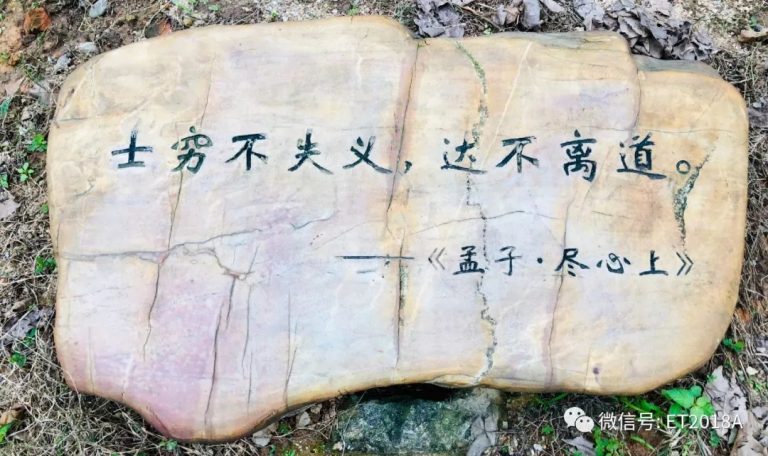 士穷不失义，达不离道。
——《孟子·尽心上》
微信号: ET2018A